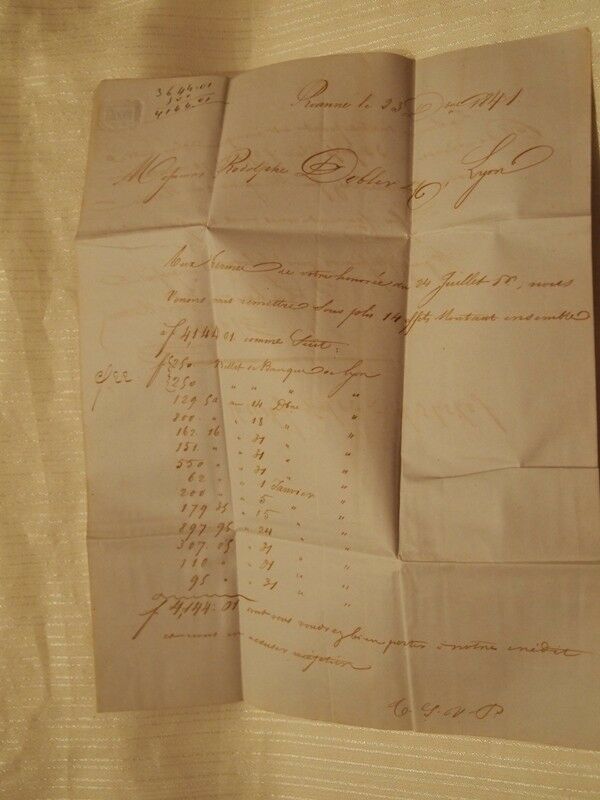 3644.01
500
4144.01
Roanne le 25 9bre 1841
Messieurs Rodolphe Debler & Cie Lyon
Aux termes de votre honorée du 24 Juillet dr, nous
venons vous remettre sous plis 14 effets montant ensemble
à f 4144 01 comme suit:
f 250 Billet de Banque de Lyon
250 " " " "
129 50 au 14 Dbre "
800 " " 15 " "
162. 16 " 31 " "
151 " " 31 " "
550 " " 31 " "
62 " " 1 Janvier "
200 " " 5 " "
179 35 " 15 " "
897 95 " 24 " "
307. 05 " 31 " "
110 " " 31 " "
95 " " 31 " "
f 4,144. 01 dont vous voudrez bien porter à notre crédit
et nous en accuser réception
T. S. V. P